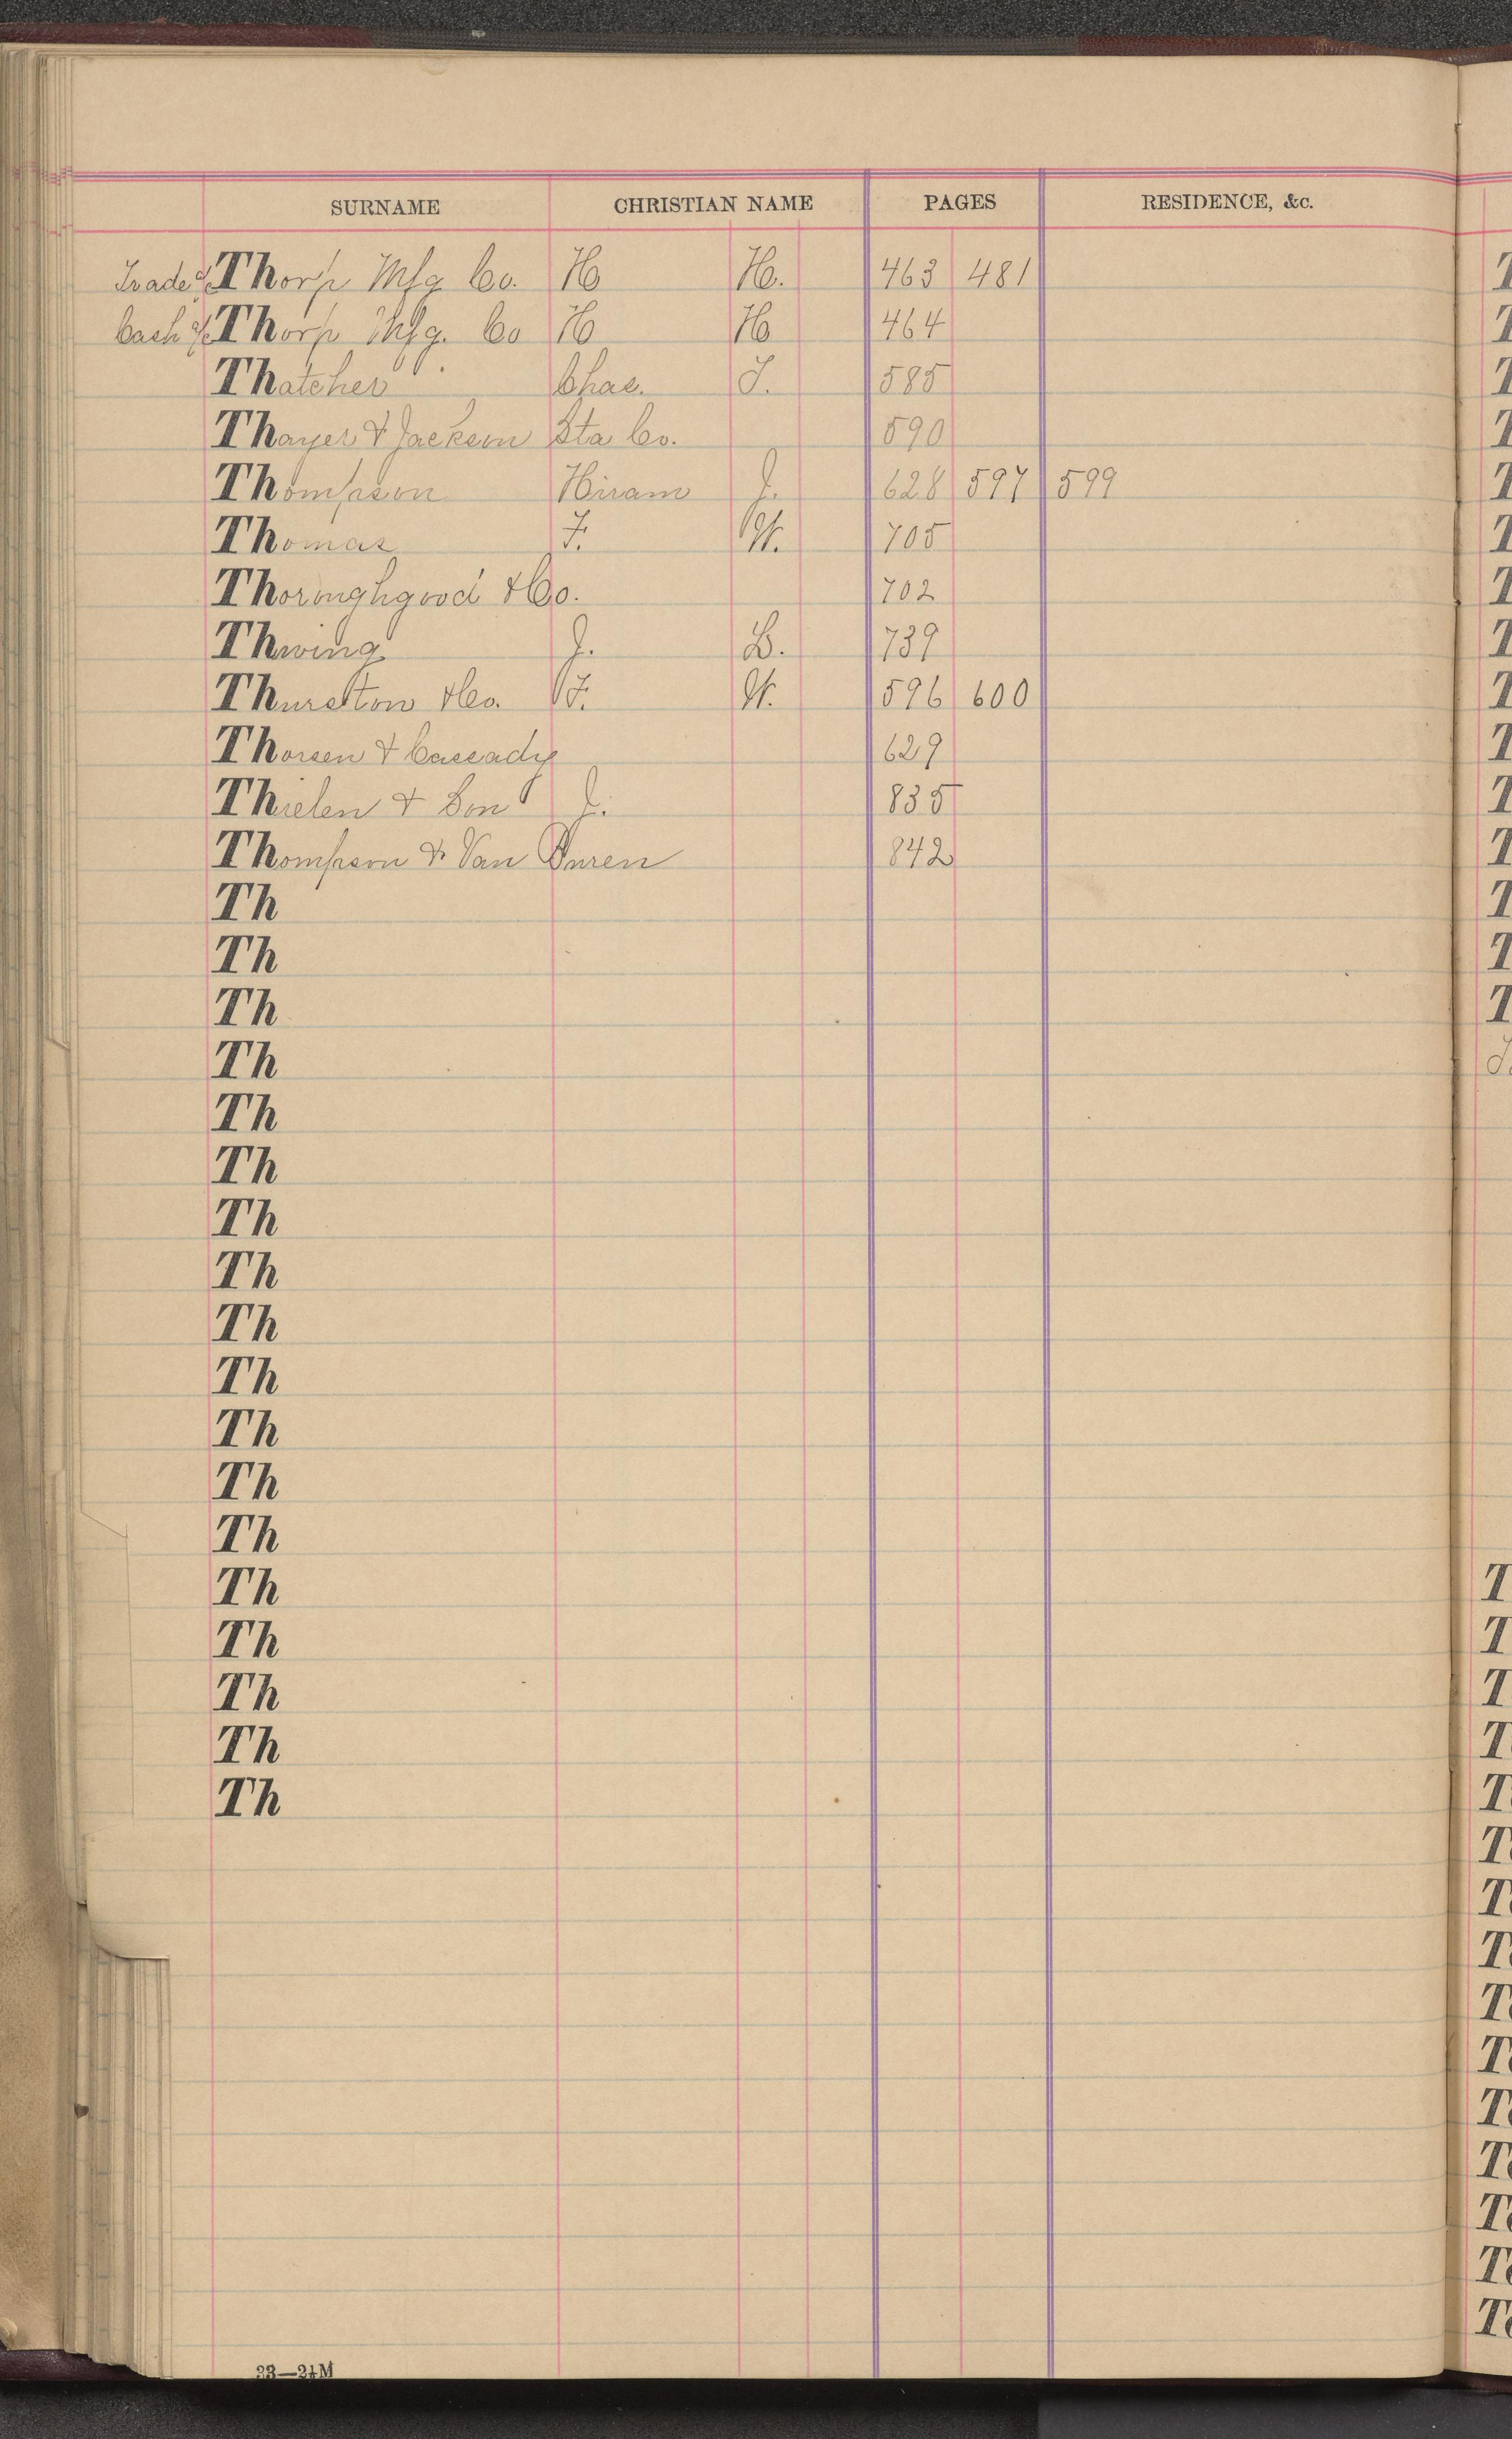 SURNAME CHRISTIAN NAME PAGES RESIDENCE, &c.
Trade % Thorp Mfg Co. H H. 463 481
Cash % Thorp Mfg. Co H H 464
Thatcher Chas. J. 585
Thayer & Jackson Sta Co. 590
Thompson Hiram J. 628 597 599
Thomas F. W. 705
Thoroughgood & Co. 702
Thwing J. B. 739
Thurston & Co. F. W. 596 600
Thorsen & Cassady 629
Thielen & Son J. 835
Thompson & Van Buren 842
Th
Th
Th
Th
Th
Th
Th
Th
Th
Th
Th
Th
Th
Th
Th
Th
Th
Th
33—2½M